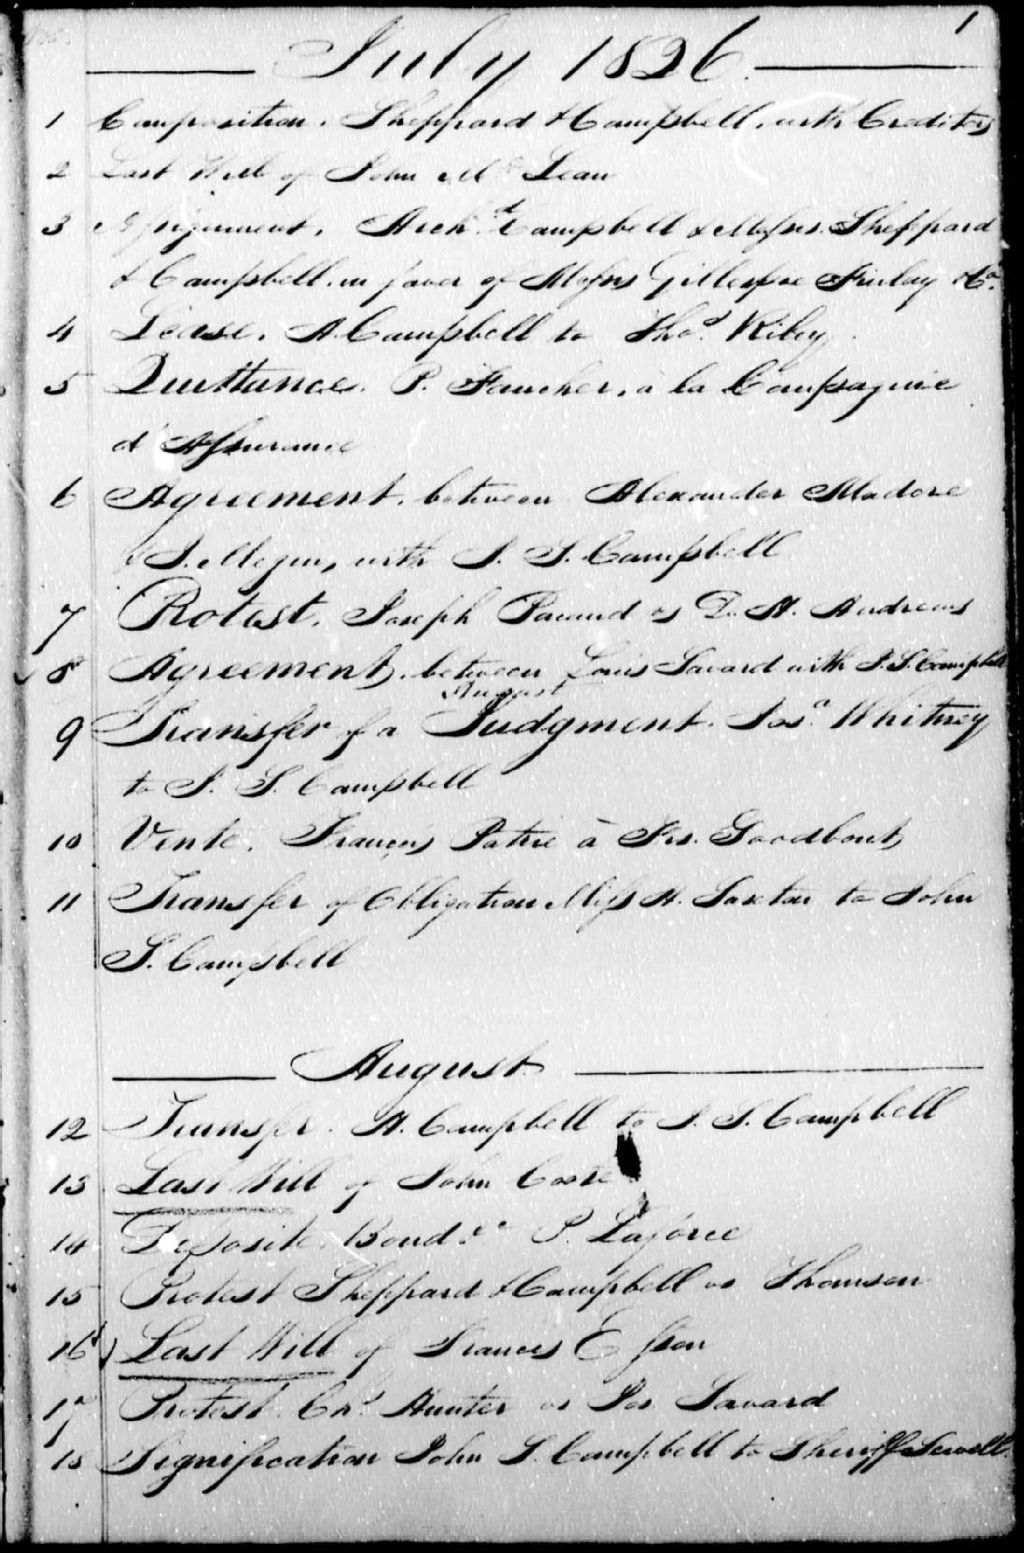 1
July 1826.
1 Composition. Sheppard & Campbell, with Creditors
2 Last Will of John Mc Lean
3 Assignment, Archd Campbell & Messrs. Sheppard
& Campbell, in favor of Messrs Gillespie Finlay & Co.
4 Lease. A. Campbell to Thos. Riley.
5 Quittance. P. Faucher, à la Compagnie
d'Assurance
6 Agreement, between Alexander Madore
& J. with J. S. Campbell
7 Protest. Joseph vs D. H. Andrews
8 Agreement, between Louis Savard with J. S. Campbell
August
9 Transfer of a Judgment. Whitney
to J. S. Campbell
10 Vente. François à Frs. Goodbout
11 Transfer of Obligation Miss H. Saxton to John
S. Campbell
August
12 Transfer. A. Campbell to J. S. Campbell
13 Last Will of John
14 Deposite. Bond. P. Laforce
15 Protest Sheppard & Campbell vs Thomson
16 Last Will of Frances Esson
17 Protest. Hunter vs Jos Savard
18 Signification John S. Campbell to Sheriff Sewell.